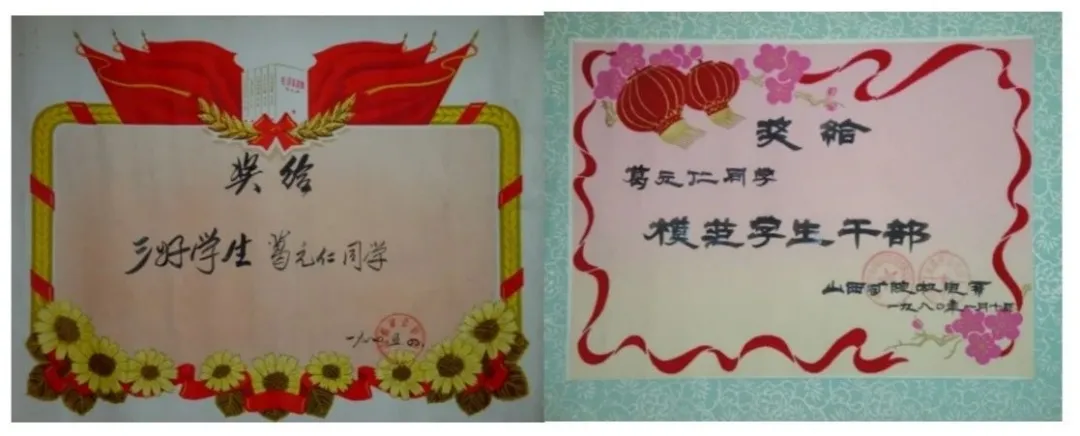 奖给
三好学生 葛元仁同学
奖给
葛元仁同学
模范学生干部
山西矿院机电系
一九八〇年一月十日